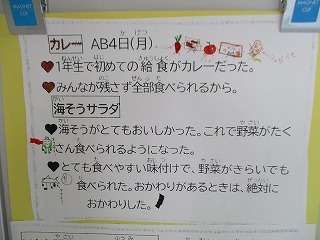 カレー AB4日(月)
1年生で初めての給食がカレーだった。
みんなが残さず全部食べられるから。
海そうサラダ
海そうがとてもおいしかった。これで野菜がたく
さん食べられるようになった。
とても食べやすい味付けで、野菜がきらいでも
食べられた。おかわりがあるときは、絶対に
おかわりした。